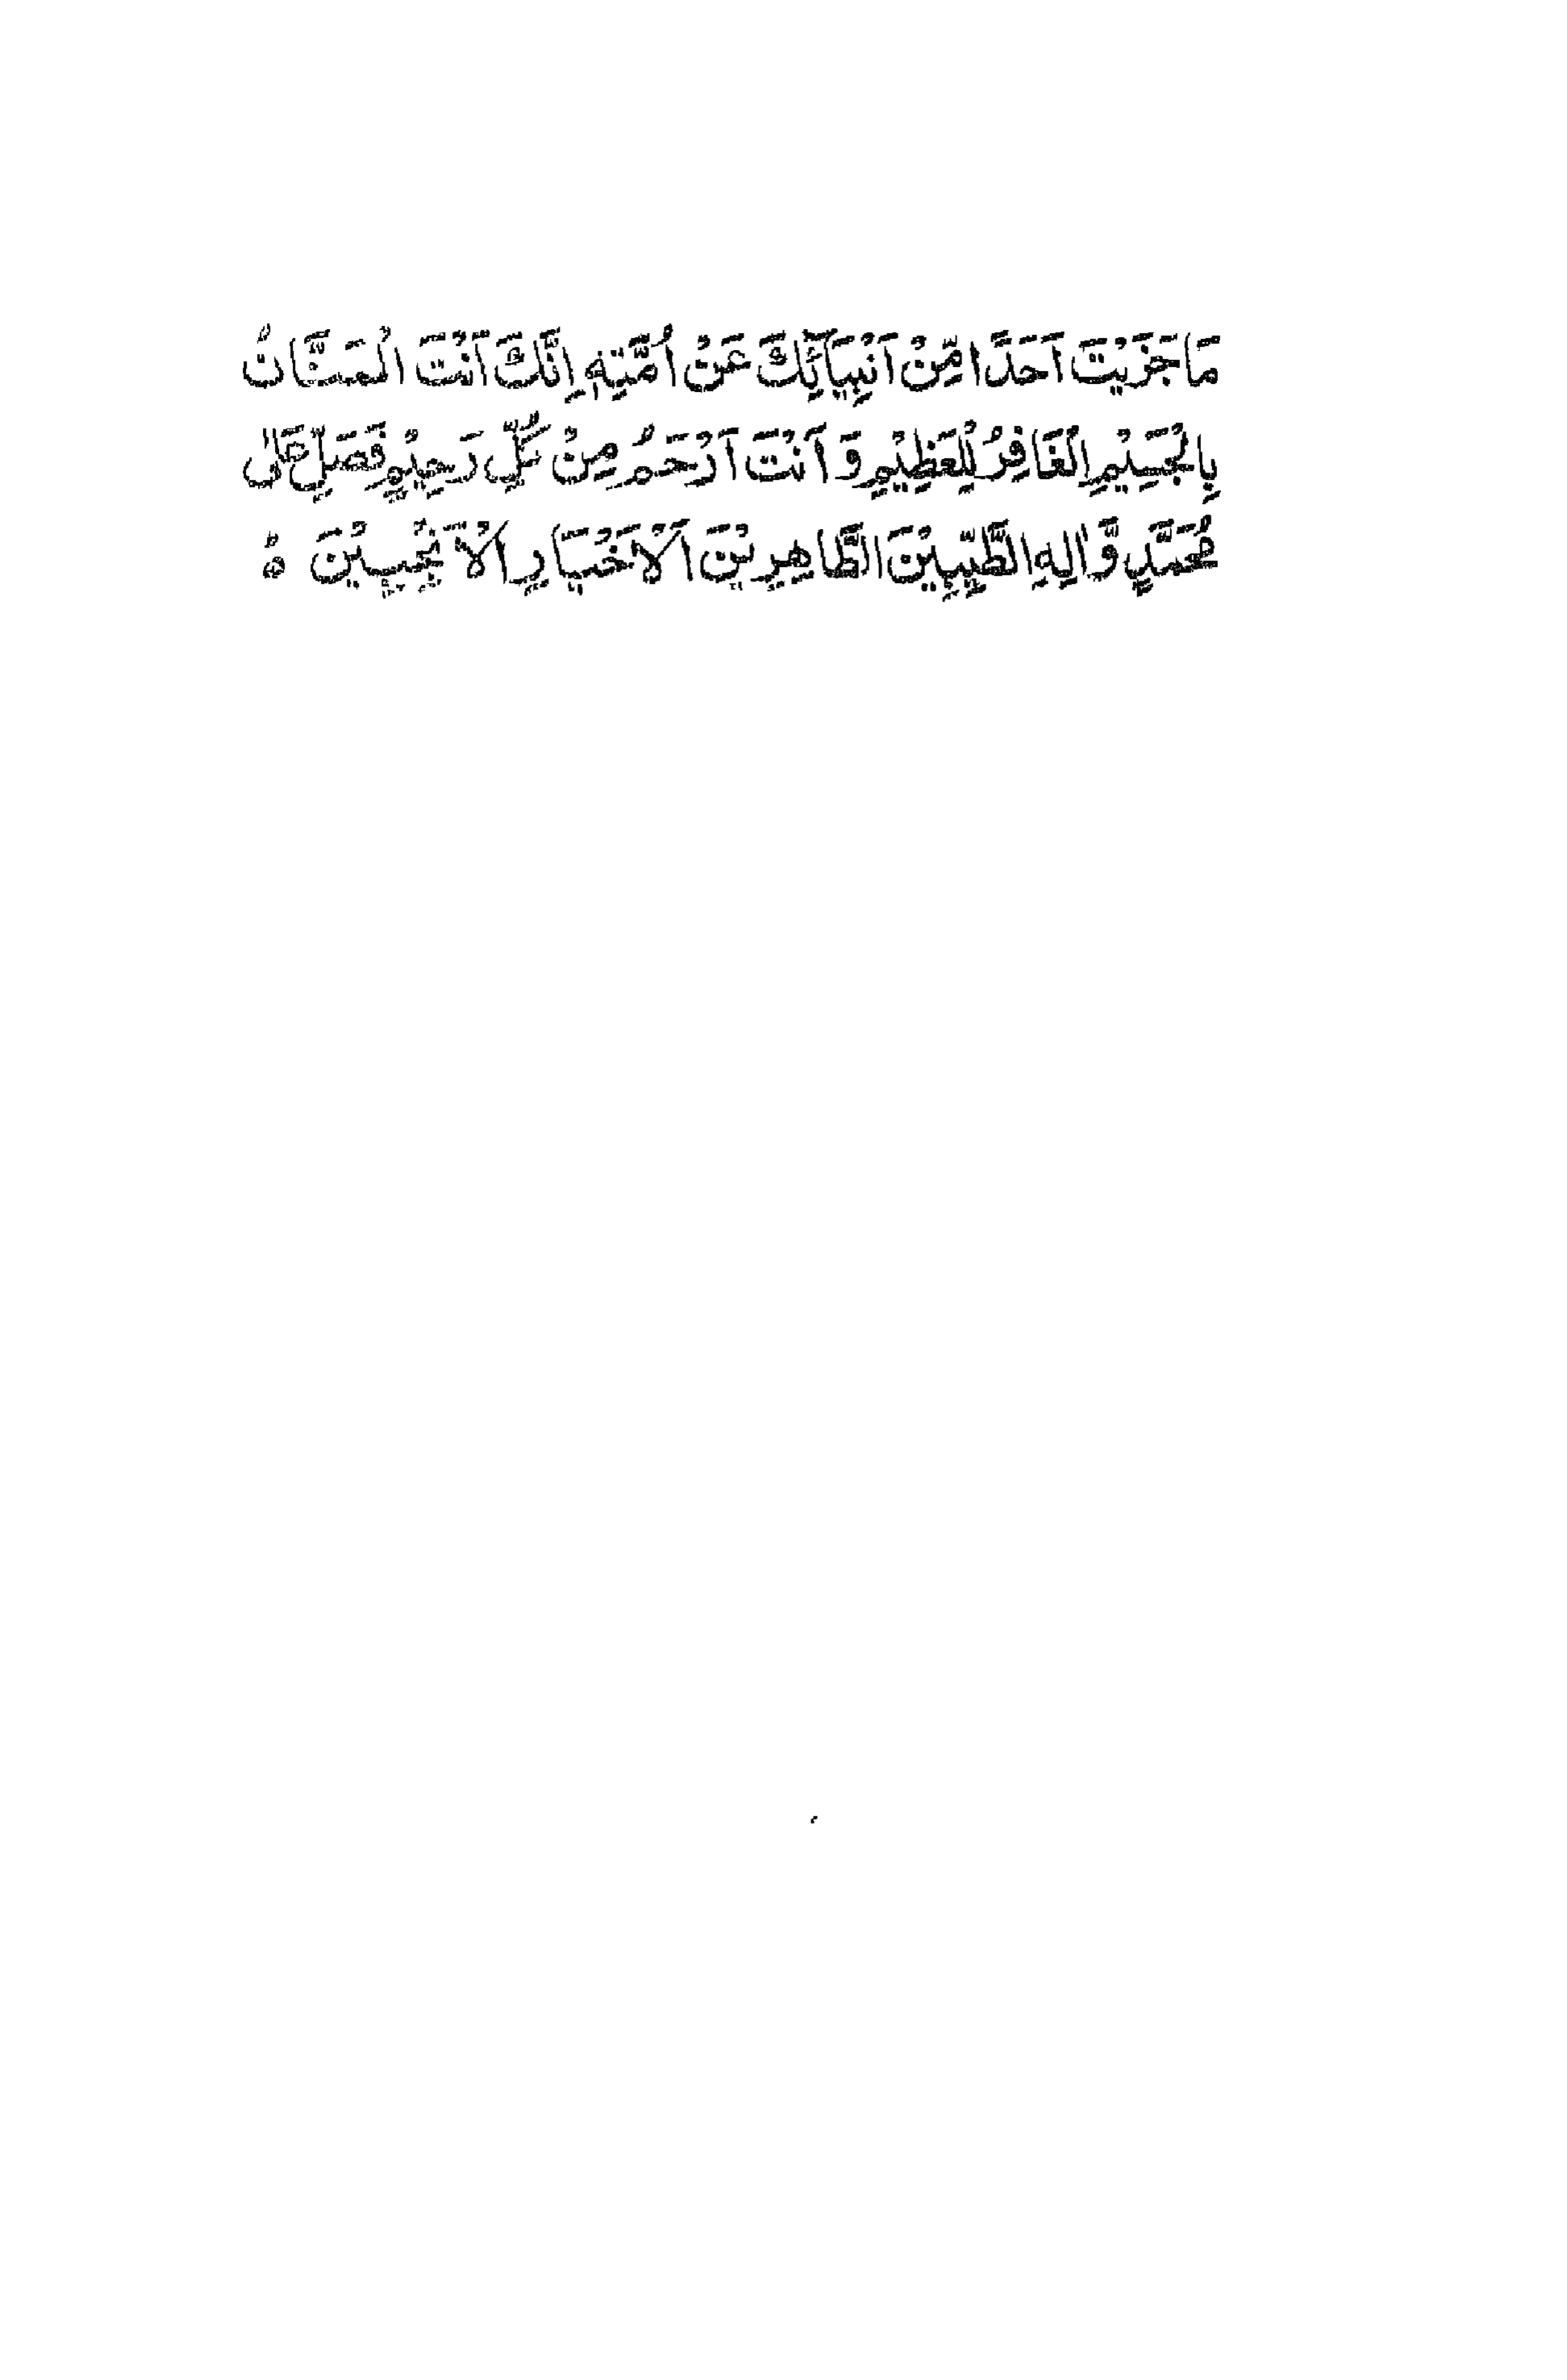 مَا جَزَيْتَ اَحَدًا مِّنْ اَنْبِيَآئِكَ عَنْ اُمَّتِهٖ اِنَّكَ اَنْتَ الْمَنَّانُ
بِالْجَسِيْمِ الْغَافِرُ لِلْعَظِيْمِ وَ اَنْتَ اَرْحَمُ مِنْ كُلِّ رَحِيْمٍ فَصَلِّ عَلٰى
مُحَمَّدٍ وَّاٰلِهِ الطَّيِّبِيْنَ الطَّاهِرِيْنَ الْاَخْيَارِ الْاَنْجَبِيْنَ ہ